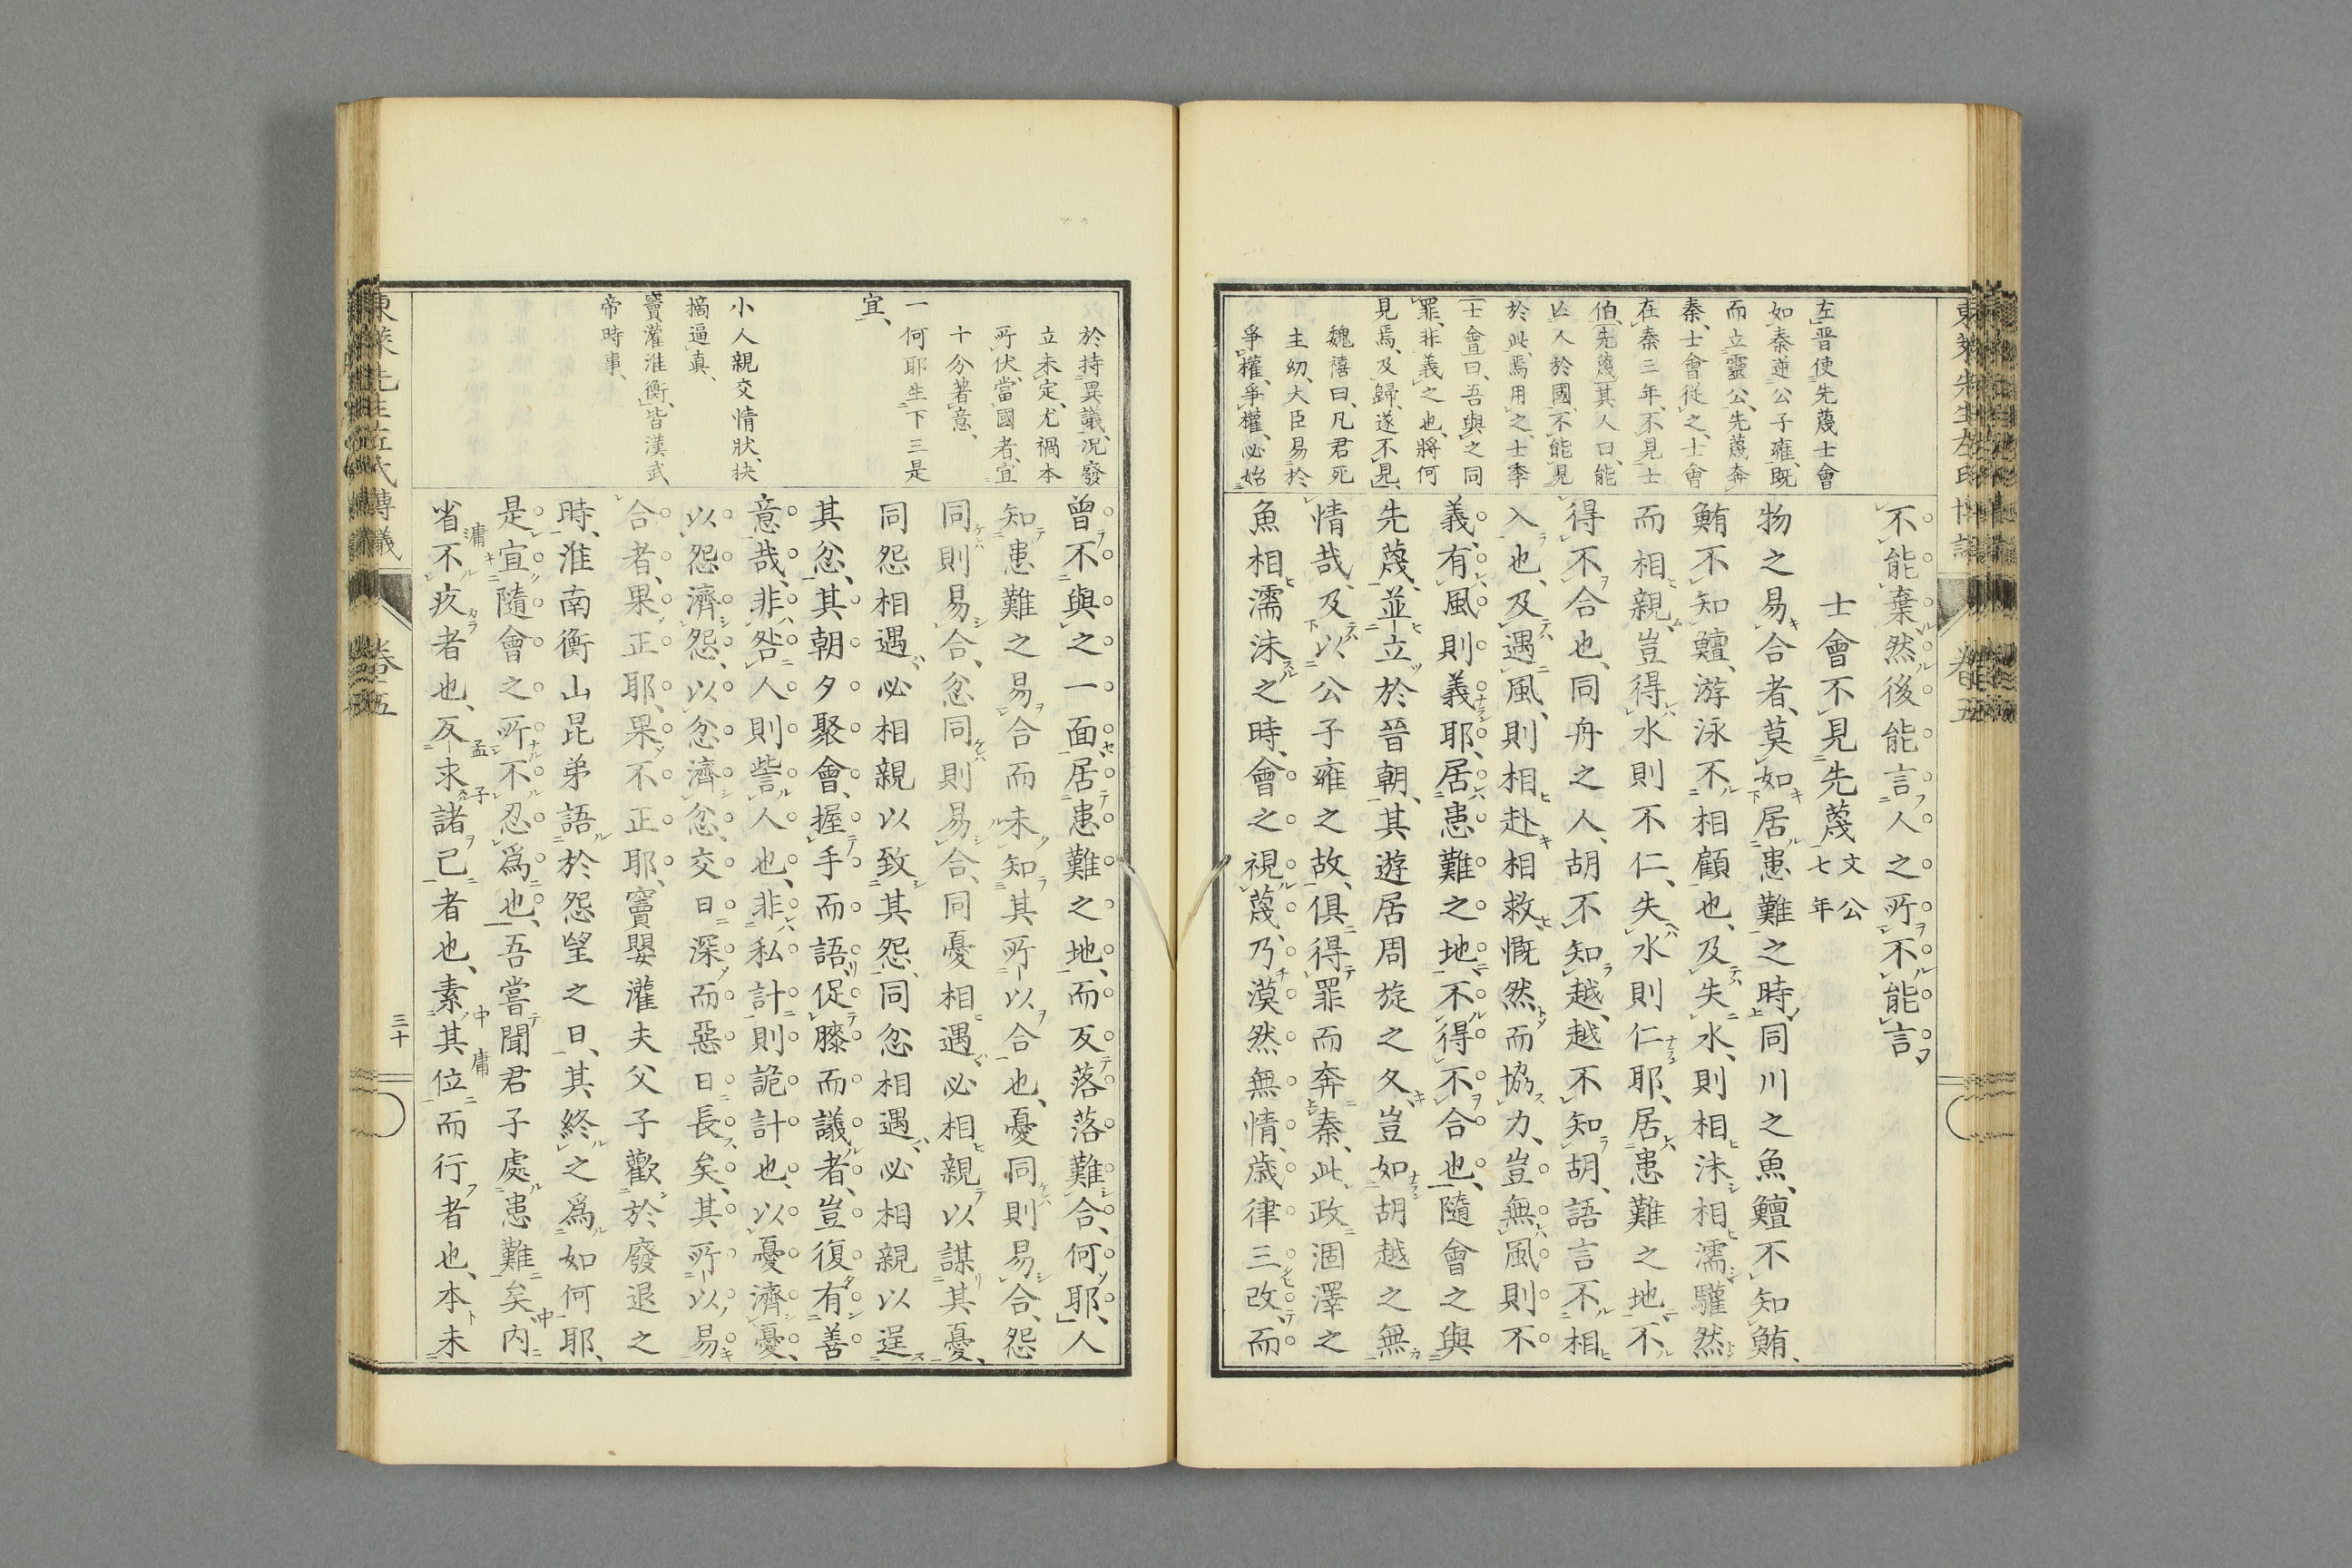 不能棄然後能言人之所不能言
士會不見先蔑文公七年
物之易合者、莫如居患難之時、同川之魚、鱣不知鮪、
鮪不知鱣、游泳不相顧也、及失水、則相沫相濡驩然
而相親、豈得水則不仁、失水則仁耶、居患難之地、不
得不合也、同舟之人、胡不知越、越不知胡、語言不相
入也、及遇風、則相赴相救、慨然而協力、豈無風則不
義、有風則義耶、居患難之地、不得不合也、隨會之與
先蔑、並立於晉朝、其遊居周旋之久、豈如胡越之無
情哉、及以公子雍之故、俱得罪而奔秦、此政涸澤之
魚相濡沫之時、會之視蔑、乃漠然無情、歲律三改而
左晉使先蔑士會
如秦逆公子雍、既
而立靈公、先蔑奔
秦、士會從之、士會
在秦三年、不見士
伯、先蔑其人曰、能
亾人於國、不能見
於此、焉用之、士季
士會曰、吾與之同
罪、非義之也、將何
見焉、及歸、遂不見、
魏禧曰、凡君死
主幼、大臣易於
爭權、爭權、必始
於持異議、况發
立未定、尤禍本
所伏、當國者、宜
十分著意、
一何耶生下三是
宜、
小人親交情狀、抉
摘逼真、
竇灌淮衡、皆漢武
帝時事、
曾不與之一面、居患難之地、而反落落難合、何耶、人
知患難之易合而未知其所以合也、憂同則易合、怨
同則易合、忿同則易合、同憂相遇、必相親以謀其憂、
同怨相遇、必相親以致其怨、同忿相遇、必相親以逞
其忿、其朝夕聚會、握手而語、促膝而議者、豈復有善
意哉、非咎人則訾人也、非私計則詭計也、以憂濟憂、
以怨濟怨、以忿濟忿、交日深而惡日長矣、其所以易
合者、果正耶、果不正耶、竇嬰灌夫父子歡於廢退之
時、淮南衡山昆弟語於怨望之日、其終之爲如何耶、
是宜隨會之所不忍爲也、吾嘗聞君子處患難矣、內
省不疚者也、反求諸己者也、素其位而行者也、本未
中庸
孟子
中庸
卷五
三十